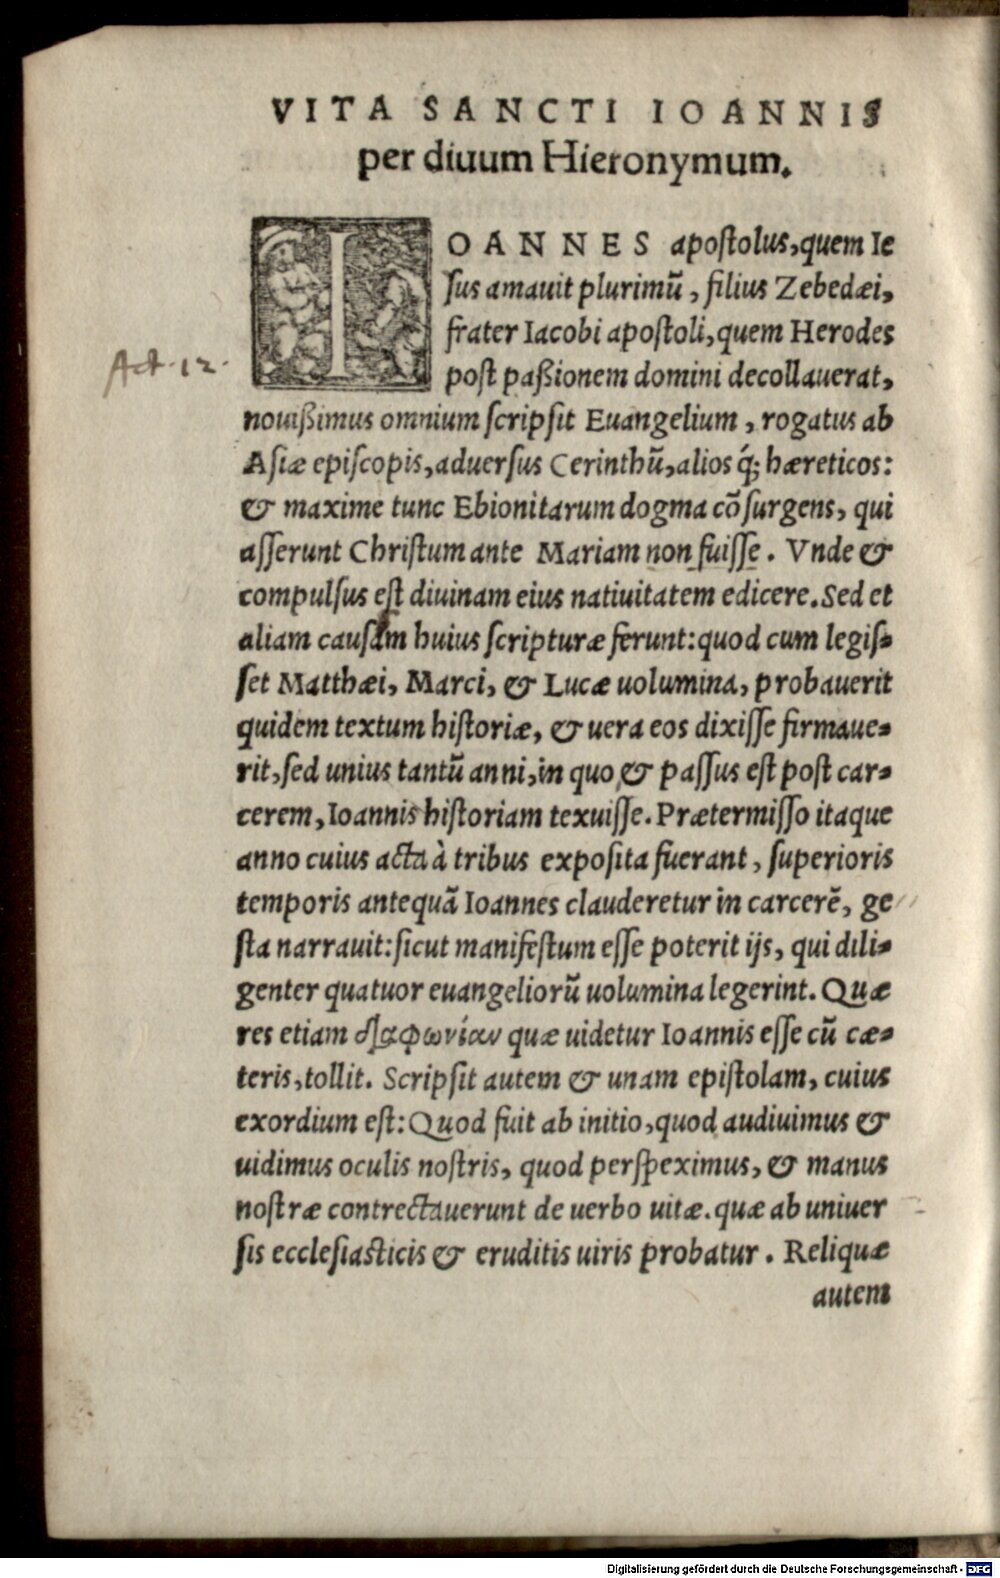 VITA SANCTI IOANNIS
per diuum Hieronymum.
IOANNES apostolus, quem Ie
sus amauit plurimũ, filius Zebedæi,
frater Iacobi apostoli, quem Herodes
Act. 12.
post paßionem domini decollauerat,
nouißimus omnium scripsit Euangelium, rogatus ab
Asiæ episcopis, aduersus Cerinthũ, alios q́; hæreticos:
& maxime tunc Ebionitarum dogma cõsurgens, qui
asserunt Christum ante Mariam non fuisse. Vnde &
compulsus est diuinam eius natiuitatem edicere. Sed et
aliam causam huius scripturæ ferunt: quod cum legis-
set Matthæi, Marci, & Lucæ uolumina, probauerit
quidem textum historiæ, & uera eos dixisse firmaue-
rit, sed unius tantũ anni, in quo & passus est post car-
cerem, Ioannis historiam texuisse. Prætermisso itaque
anno cuius acta à tribus exposita fuerant, superioris
temporis antequã Ioannes clauderetur in carcerẽ, ge
sta narrauit: sicut manifestum esse poterit ijs, qui dili-
genter quatuor euangeliorũ uolumina legerint. Quæ
res etiam διαφωνίαν quæ uidetur Ioannis esse cũ cæ-
teris, tollit. Scripsit autem & unam epistolam, cuius
exordium est: Quod fuit ab initio, quod audiuimus &
uidimus oculis nostris, quod perspeximus, & manus
nostræ contrectauerunt de uerbo uitæ. quæ ab uniuer
sis ecclesiasticis & eruditis uiris probatur. Reliquæ
autem
Digitalisierung gefördert durch die Deutsche Forschungsgemeinschaft - DFG